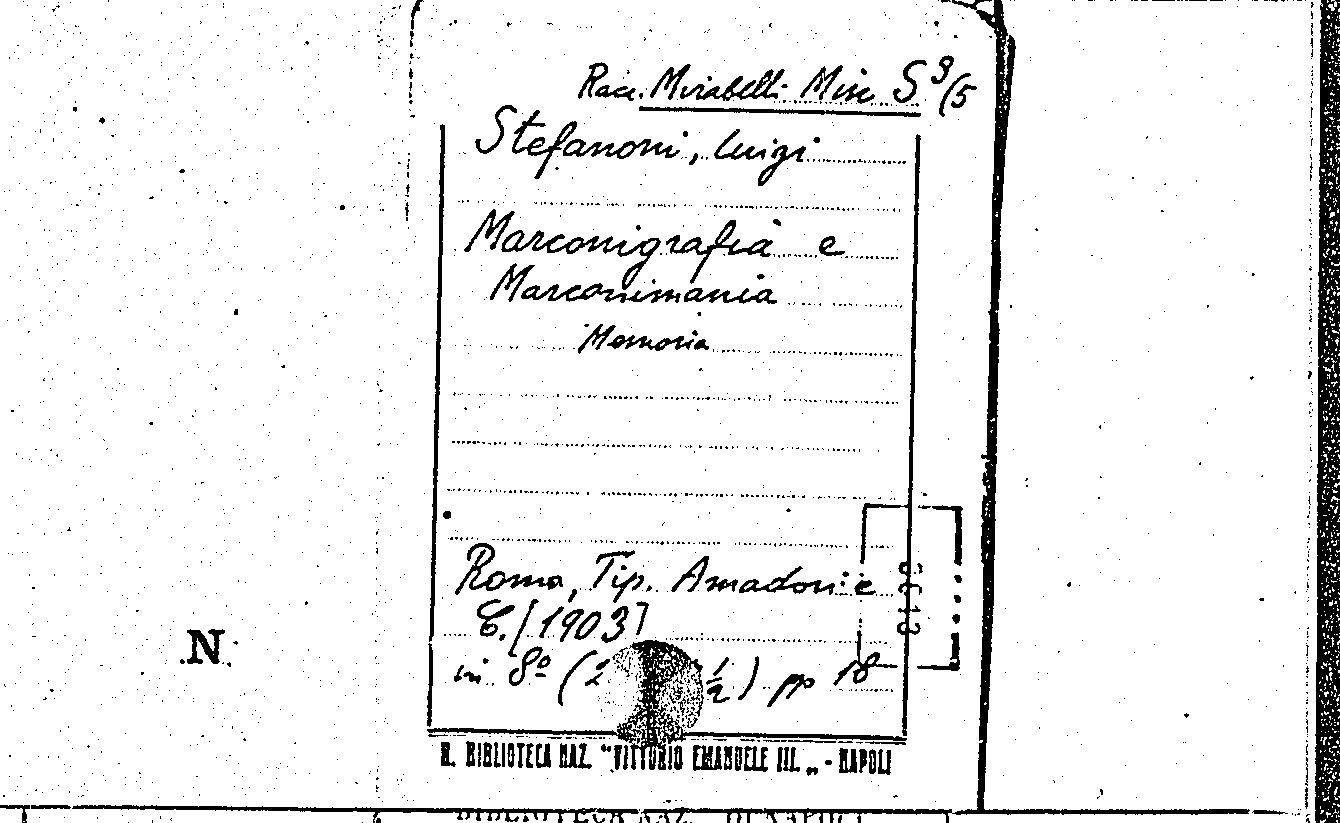 Racc. Mirabelli Misc S 3/5
Stefanoni, Luigi
Marconigrafia e
Marconimania
Memoria
Roma, Tip. Amadori e
C. [1903]
in 8º (2 1/2) pp 18
.N.
R. BIBLIOTECA NAZ. "VITTORIO EMANUELE III. „ - NAPOLI
BIBLIOTECA NAZ. DI NAPOLI